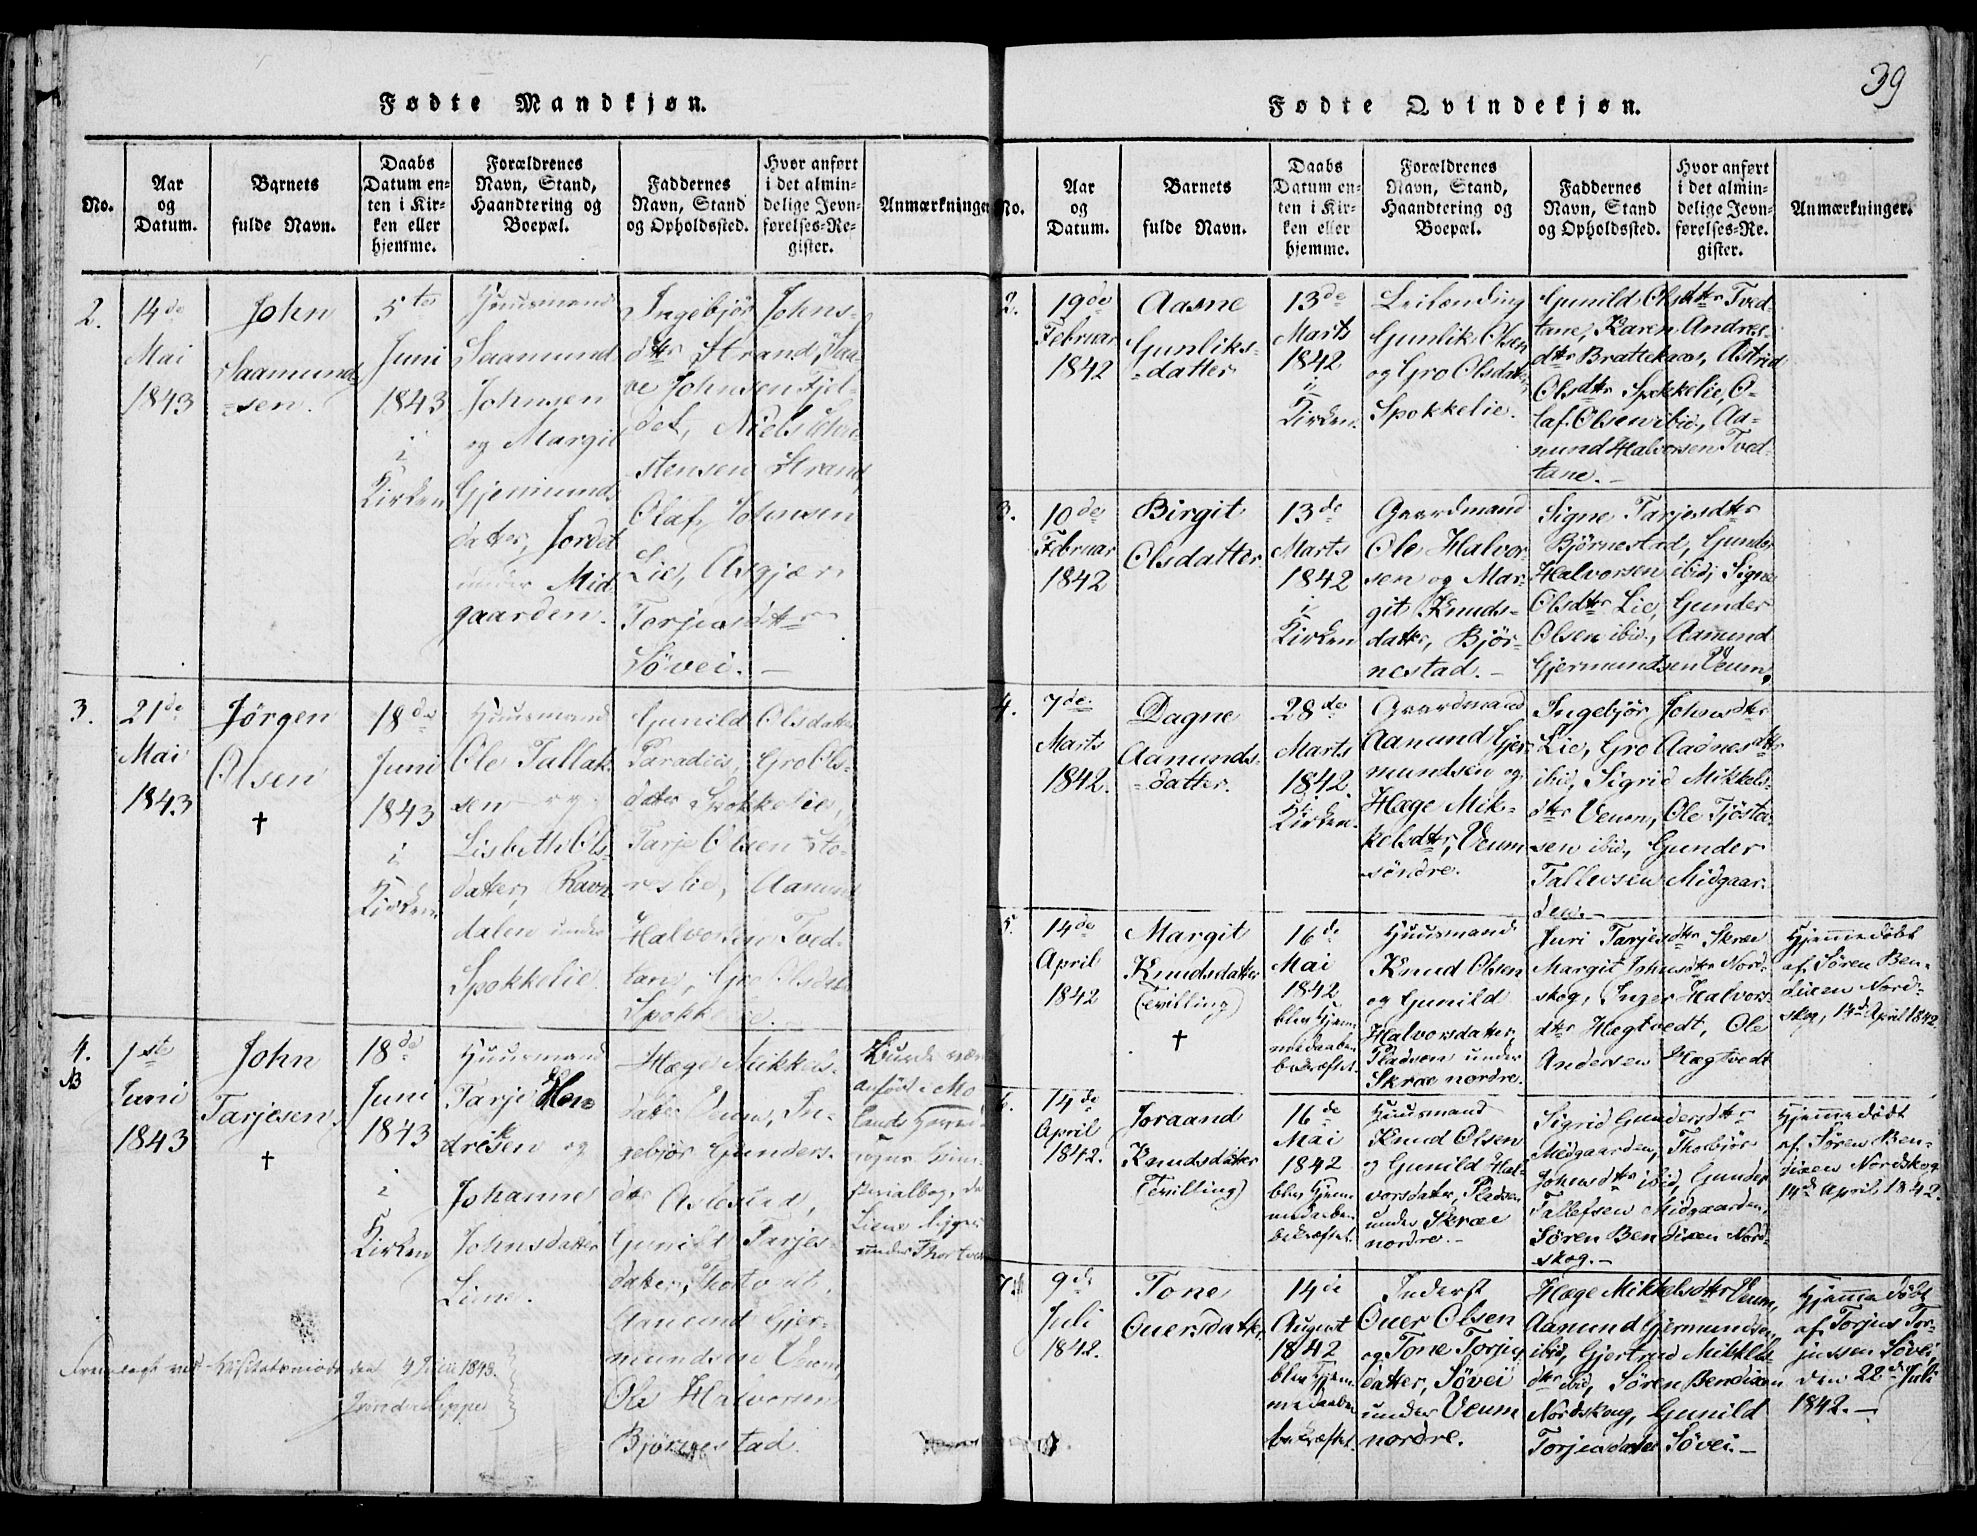 39
Fødte Mandkjøn.
No.
Aar
og
Datum.
Barnets
fulde Navn.
Daabs
Datum en-
ten i Kir-
ken eller
hjemme.
Forældrenes
Navn, Stand,
Haandtering og
Boepæl.
Faddernes
Navn, Stand
og Opholdssted.
Hvor anført
i det almin-
delige Jevn-
førelses-Re-
gister.
Anmærkninger
2.
14de
Mai
1843
John
Saamunds
=sen.
5te
Juni
1843
i
Kirken
Huusmand
Saamund
Johnsen
og Margit
Gjermunds
datter, Jordet
under Mid
gaarden.
Ingebjør Johns-
dtr Strand,
ve Johnsen Fjel-
det, Niels
stensen Strand,
Olaf Johnsen
Lie, Asgjær
Torjusdtr
Søvei. —
3.
21de
Mai
1843
Jørgen
Olsen
†
18de
Juni
1843
i
Kirken
Huusmand
Ole Tallak-
sen og
Lisbeth Ols-
datter, Ravn
dalen under
Spokkelie.
Gunild Olsdatter
Paradiis, Gro Ols-
datter Spokkelie,
Tarje Olsen Sto-
reslie, Aanund
Halvorsen Tved-
tan, Gro Olsdatter
Spokkelie.
4.
NB
1ste
Juni
1843
John
Tarjesen.
†
18de
Juni
1843
i
Kirken
Huusmand
Tarje Hen
driksen og
Johanne
Johnsdatter
Liene.
Hæge Mikkels-
datter Veum, In-
gebjør Gunders-
dtr Aslestad,
Gunild Tarjes-
datter, Thortvedt,
Aanund Gjer-
mundsen Veum,
Ole Halvorsen
Bjørnestad.
Burde være
anført i Mo
lands Hoved-
sogns Mini-
sterialbog, da
Liene ligger
under Thortvedt
Fremlagt ved Visitatsmøde den 4 Juli 1843.
Fødte Qvindekjøn.
No.
Aar
og
Datum.
Barnets
fulde Navn.
Daabs
Datum en-
ten i Kir-
ken eller
hjemme.
Forældrenes
Navn, Stand,
Haandtering og
Boepæl.
Faddernes
Navn, Stand
og Opholdssted.
Hvor anført
i det almin-
delige Jevn-
førelses-Re-
gister.
Anmærkninger.
2.
19de
Februar
1842
Aasne
Gunliks-
=datter
13de
Marts
1842
i
Kirken
Leilænding
Gunlik Olsen
og Gro Olsdatter
Spokkelie.
Gunild Olsdtr Tved-
tane, Karen Andres-
dtr Brattekaas, Astrid
Olsdtr Spokkelie, O-
laf Olsen ibid., Aa-
nund Halvorsen Tved-
tane. —
3.
10de
Februar
1842
Birgit
Olsdatter
13de
Marts
1842
i
Kirken
Gaardmand
Ole Halvor-
sen og Mar-
git Knuds-
datter, Bjør-
nestad. —
Signe Tarjesdtr
Bjørnestad, Gunder
Halvorsen ibid, Signe
Olsdtr Lie, Gunder
Olsen ibid., Aanund
Gjermundsen Veum.
4.
7de
Marts
1842.
Dagne
Aanunds-
=datter.
28de
Marts
1842.
i
Kirken.
Gaardmand
Aanund Gjer
mundsen og
Hæge Mik-
kelsdtr, Veum
søndre.
Ingebjør Johnsdtr
Lie, Gro Aadnesdtr
ibid, Sigrid Mikkels-
dtr Veum, Ole Tjøsta-
sen ibid, Gunder
Tallevsen Midgaar-
den. —
5.
14de
April
1842
Margit
Knudsdatter
(Tvilling)
†
16de
Mai
1842
blev Hjem-
medaaben
bekræftet.
Huusmand
Knud Olsen
og Gunild
Halvorsdatter,
Pladsen under
Skræe nordre.
Juri Tarjesdtr Skræe
Margit Johnsdtr Nord-
skog, Inger Halvors-
dtr Hægtvedt, Ole
Andersen Hægtvedt
Hjemmedøbt
af Søren Ben-
dixen Nord-
skog, 14de April 1842.
6.
14de
April
1842.
Joraand
Knudsdatter
(Tvilling)
16de
Mai
1842
blev Hjem
medaaben
bekræftet.
Huusmand
Knud Olsen
og Gunild Hal-
vorsdatter, Pladsen
under Skræe
nordre. —
Sigrid Gundersdtr
Midgaarden, Thorbjør
Johnsdtr ibid, Gunder
Tallefsen Midgaarden,
Søren Bendixen Nord-
skog. —
Hjemmedøbt
af Søren Ben-
dixen Nordskog
14de April 1842.
7.
9de
Juli
1842.
Tone
Ouersdatter
14de
August
1842
blev Hjem
medaaben
bekræftet.
Inderst
Ouer Olsen
og Tone Torjus
datter, Søvei
under Veum
nordre.
Hæge Mikkelsdtr Veum,
Aanund Gjermundsen
ibid, Gjertrud Mikkels-
dtr ibid, Søren Bendixen
Nordskoug, Gunild
Torjusdatter Søvei. —
Hjemmedøbt
af Torjus Tor-
jussen Søvei,
den 22de Juli
1842. —